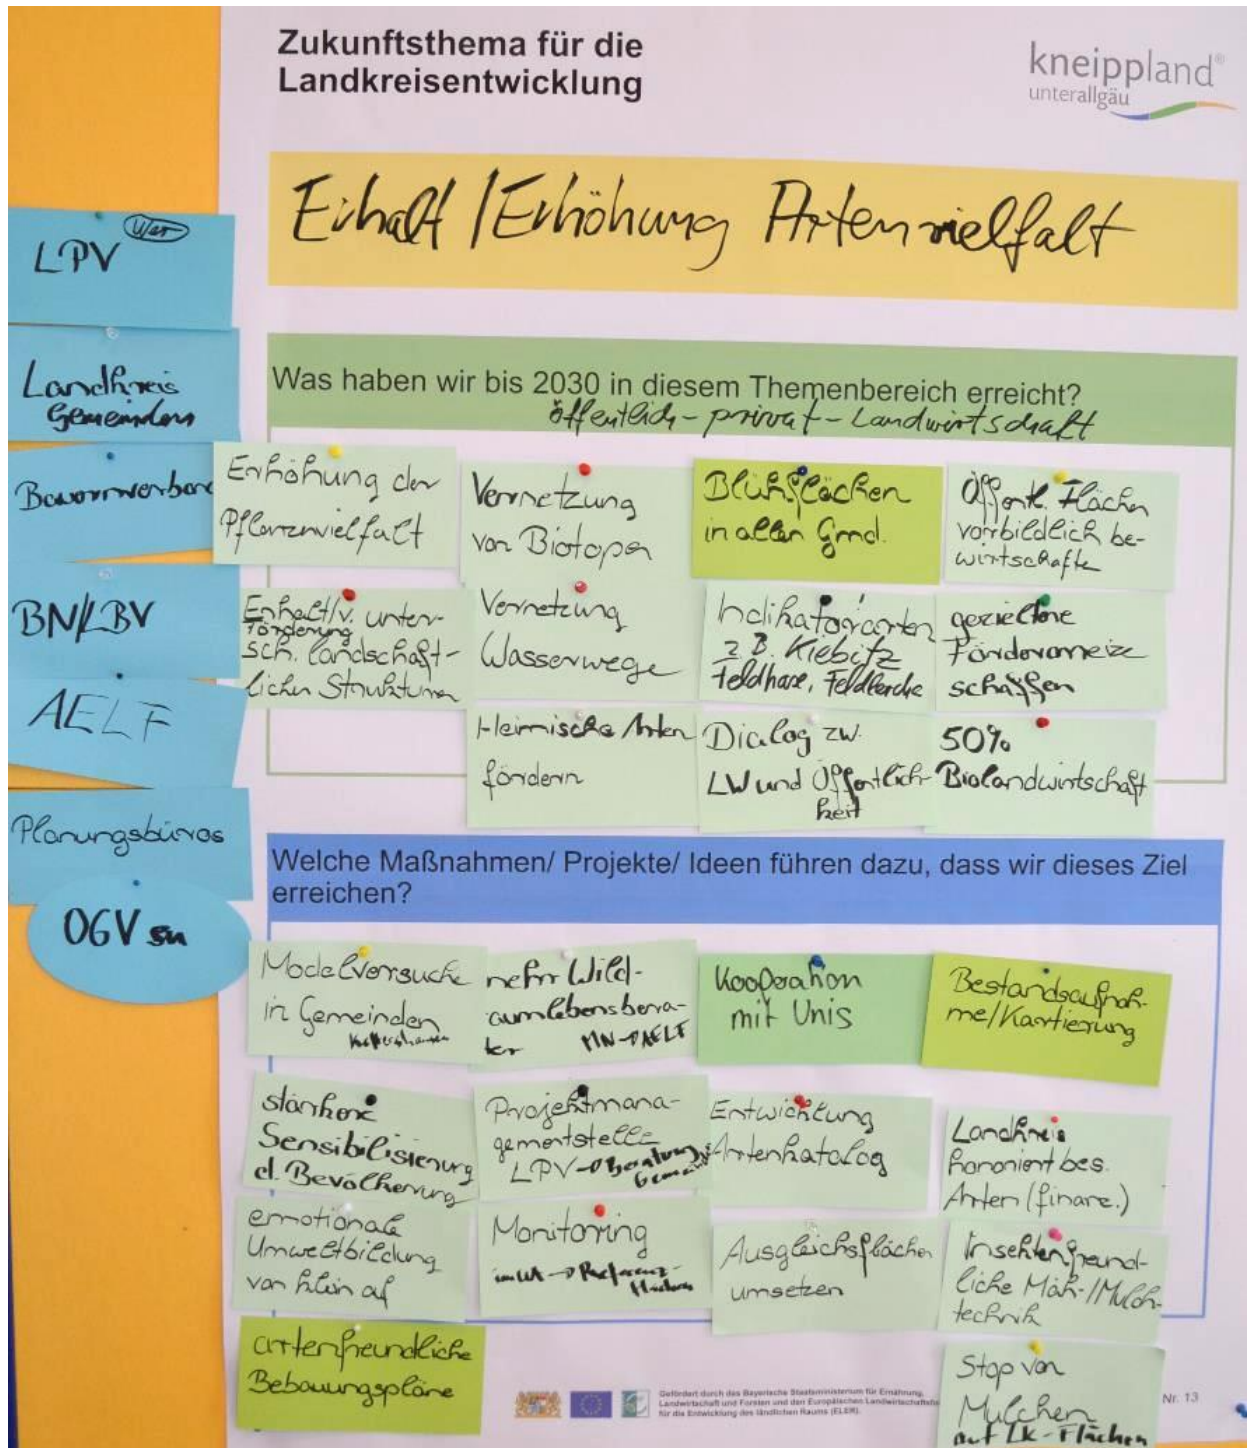 Zukunftsthema für die
Landkreisentwicklung
kneippland®
unterallgäu
Erhalt / Erhöhung Artenvielfalt
Wer
LPV
Landkreis
Gemeinden
BN/LBV
AELF
Planungsbüros
OGV
Was haben wir bis 2030 in diesem Themenbereich erreicht?
öffentlich - privat - Landwirtschaft
Erhöhung der
Pflanzenvielfalt
Vernetzung
von Biotopen
Blühflächen
in allen Gmd.
Öffentl. Flächen
vorbildlich be-
wirtschafte
Erhalt/v. unter-
Förderung
sch. landschaft-
licher Strukturen
Vernetzung
Wasserwege
Indikatorarten
z.B. Kiebitz
Feldhase, Feldlerche
gezieltere
Förderanreize
schaffen
Heimische Arten
fördern
Dialog zw.
LW und Öffentlich-
keit
50%
Biolandwirtschaft
Welche Maßnahmen/ Projekte/ Ideen führen dazu, dass wir dieses Ziel
erreichen?
Modellversuche
in Gemeinden
mehr Wild-
MN → AELF
Kooperation
mit Unis
Bestandsaufnah-
me/Kartierung
stärkere
Sensibilisierung
d. Bevölkerung
Projektmana-
gementstelle
LPV → Beratung
Entwicklung
Artenkatalog
Landkreis
honoriert bes.
Arten (finanz.)
emotionale
Umweltbildung
von klein auf
Monitoring
→ Referenz-
flächen
Ausgleichsflächen
umsetzen
Insektenfreund-
liche Mäh-/Mulch-
technik
artenfreundliche
Bebauungspläne
Stop von
Mulchen
auf LK-Flächen
Gefördert durch das Bayerische Staatsministerium für Ernährung,
Landwirtschaft und Forsten und den Europäischen Landwirtschaftsfo
für die Entwicklung des ländlichen Raums (ELER).
Nr. 13